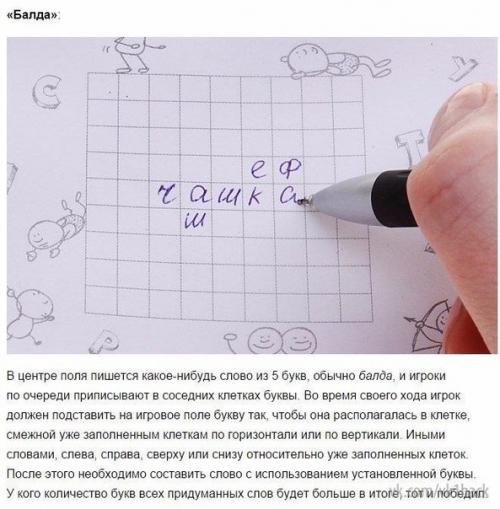 «Балда»:
С
У
Т
е Ф
чашка
ш
Р
В центре поля пишется какое-нибудь слово из 5 букв, обычно балда, и игроки
по очереди приписывают в соседних клетках буквы. Во время своего хода игрок
должен подставить на игровое поле букву так, чтобы она располагалась в клетке,
смежной уже заполненным клеткам по горизонтали или по вертикали. Иными
словами, слева, справа, сверху или снизу относительно уже заполненных клеток.
После этого необходимо составить слово с использованием установленной буквы.
У кого количество букв всех придуманных слов будет больше в итоге, тот и победил.